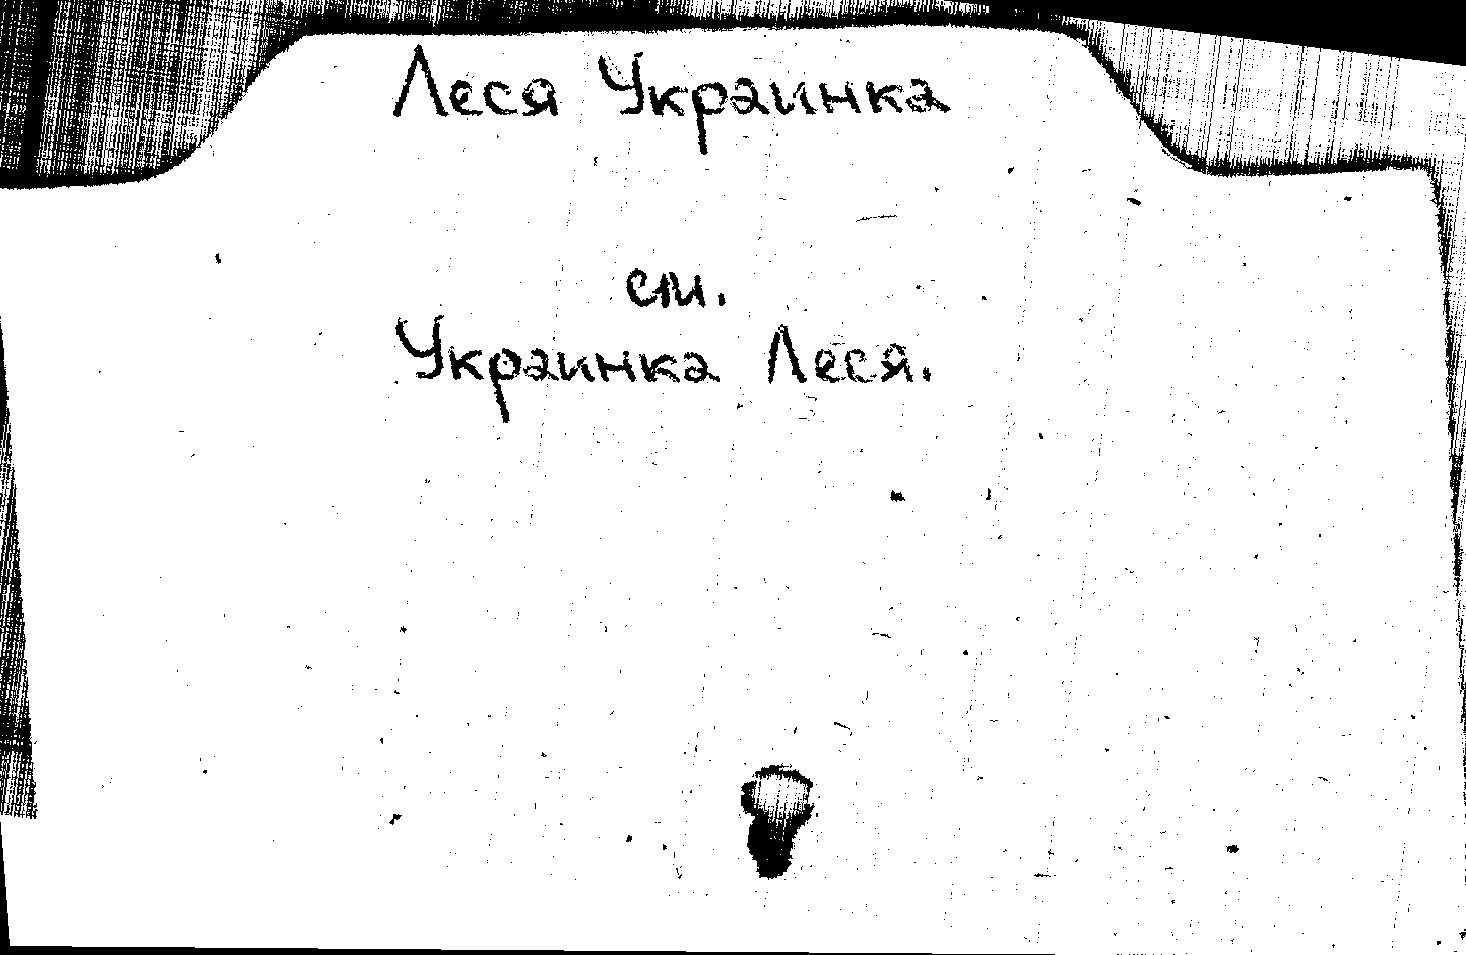 Леся Украинка
см.
Украинка Леся.